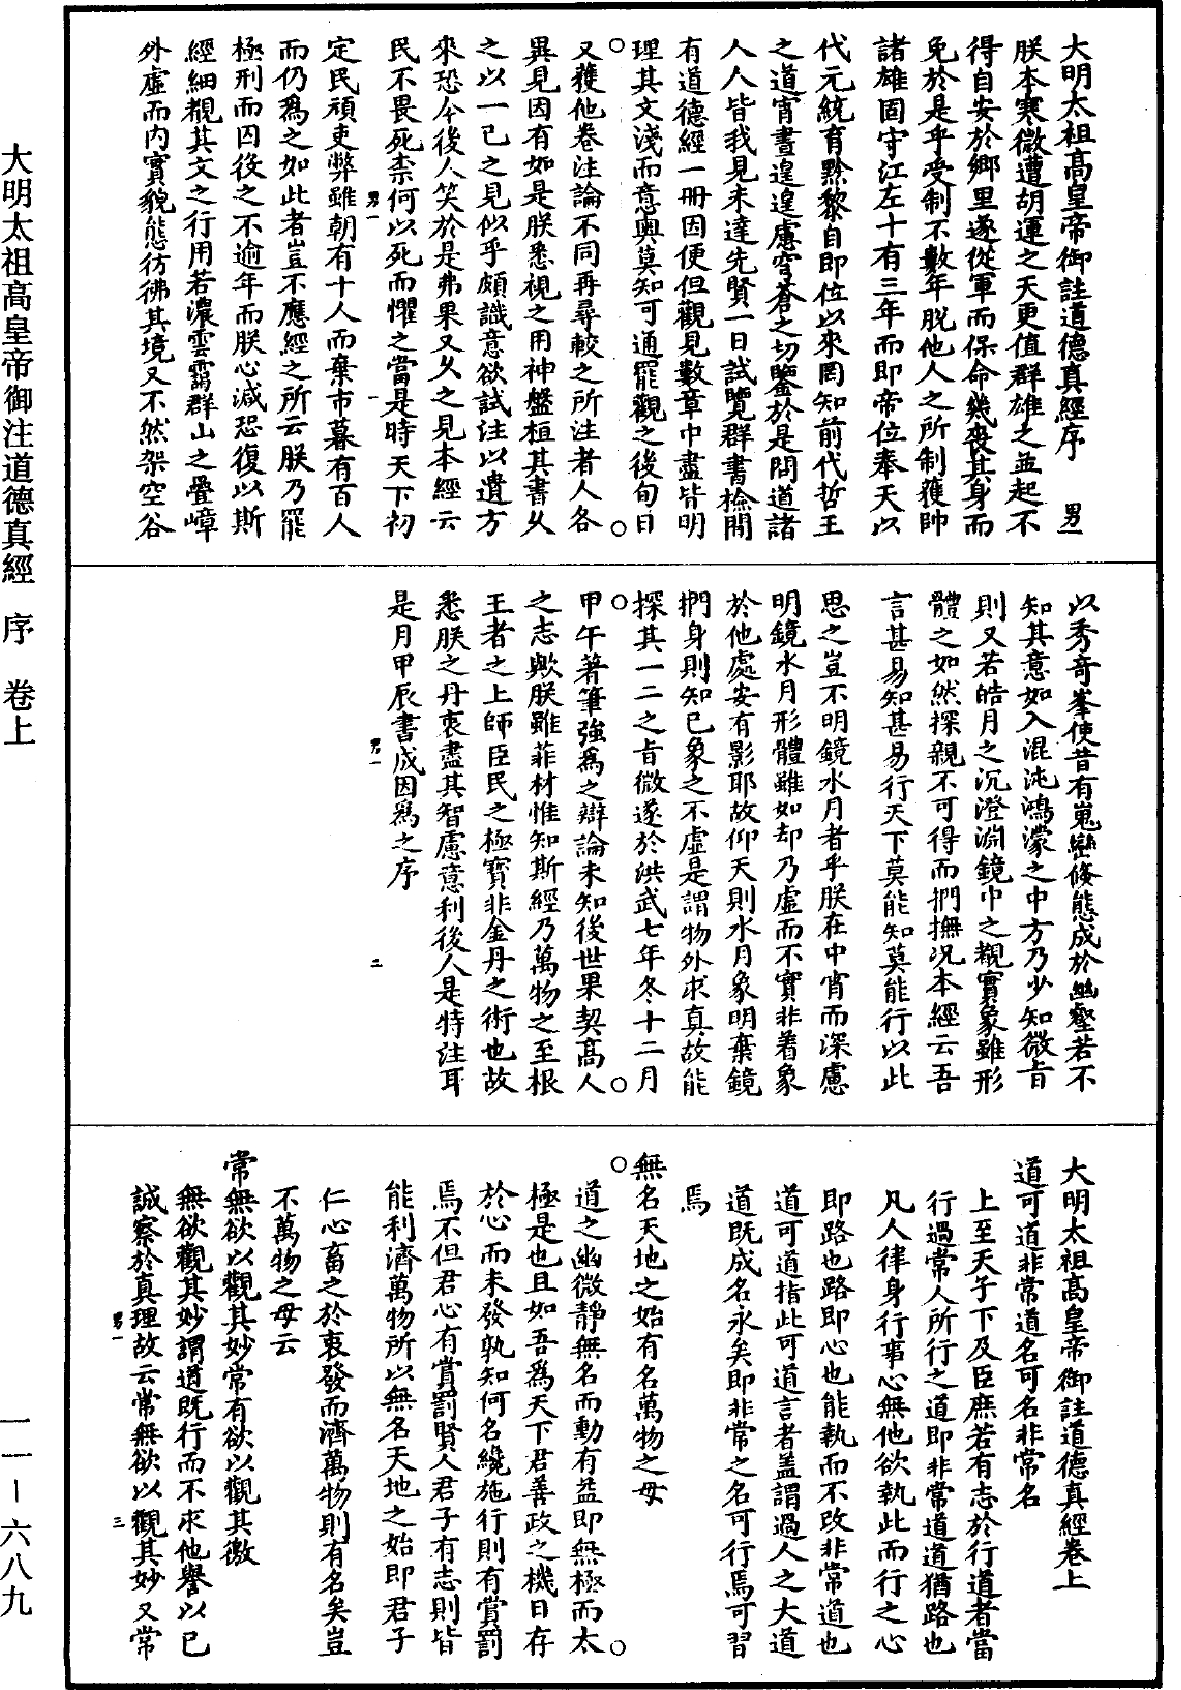 大明太祖高皇帝御註道德真經序　男一
朕本寒微遭胡運之天更值群雄之並起不
得自安於鄉里遂從軍而保命幾喪其身而
免於是乎受制不數年脫他人之所制獲帥
諸雄固守江左十有三年而即帝位奉天以
代元統育黔黎自即位以來罔知前代哲王
之道宵晝遑遑慮穹蒼之切鑒於是問道諸
人人皆我見未達先賢一日試覽群書檢間
有道德經一冊因便但觀見數章中盡皆明
理其文淺而意奧莫知可通罷觀之後旬日
又獲他卷注論不同再尋較之所注者人各
異見因有如是朕悉視之用神盤桓其書久
之以一己之見似乎頗識意欲試注以遺方
來恐今後人笑於是弗果又久之見本經云
民不畏死柰何以死而懼之當是時天下初
男一　一
定民頑吏弊雖朝有十人而棄市暮有百人
而仍為之如此者豈不應經之所云朕乃罷
極刑而囚役之不逾年而朕心減恐復以斯
經細觀其文之行用若濃雲靄群山之疊嶂
外虛而內實貌態彷彿其境又不然架空谷
以秀奇峯使昔有嵬巒倏態成於幽壑若不
知其意如入混沌鴻濛之中方乃少知微旨
則又若皓月之沉澄淵鏡中之觀實象雖形
體之如然探親不可得而捫撫況本經云吾
言甚易知甚易行天下莫能知莫能行以此
思之豈不明鏡水月者乎朕在中宵而深慮
明鏡水月形體雖如却乃虛而不實非著象
於他處安有影耶故仰天則水月象明棄鏡
捫身則知己象之不虛是謂物外求真故能
探其一二之旨微遂於洪武七年冬十二月
甲午著筆強為之辯論未知後世果契高人
之志歟朕雖菲材惟知斯經乃萬物之至根
王者之上師臣民之極寶非金丹之術也故
悉朕之丹衷盡其智慮意利後人是特注耳
男一　二
是月甲辰書成因為之序
大明太祖高皇帝御註道德真經卷上
道可道非常道名可名非常名
上至天子下及臣庶若有志於行道者當
行過常人所行之道即非常道道猶路也
凡人律身行事心無他欲執此而行之心
即路也路即心也能執而不改非常道也
道可道指此可道言者蓋謂過人之大道
道既成名永矣即非常之名可行焉可習
焉
無名天地之始有名萬物之母
道之幽微靜無名而動有益即無極而太
極是也且如吾為天下君善政之機日存
於心而未發孰知何名纔施行則有賞罰
焉不但君心有賞罰賢人君子有志則皆
能利濟萬物所以無名天地之始即君子
仁心畜之於衷發而濟萬物則有名矣豈
不萬物之母云
常無欲以觀其妙常有欲以觀其徼
無欲觀其妙謂道既行而不求他譽以己
誠察於真理故云常無欲以觀其妙又常
男一　三
大明太祖高皇帝御注道德真經　序　卷上
一一－六八九